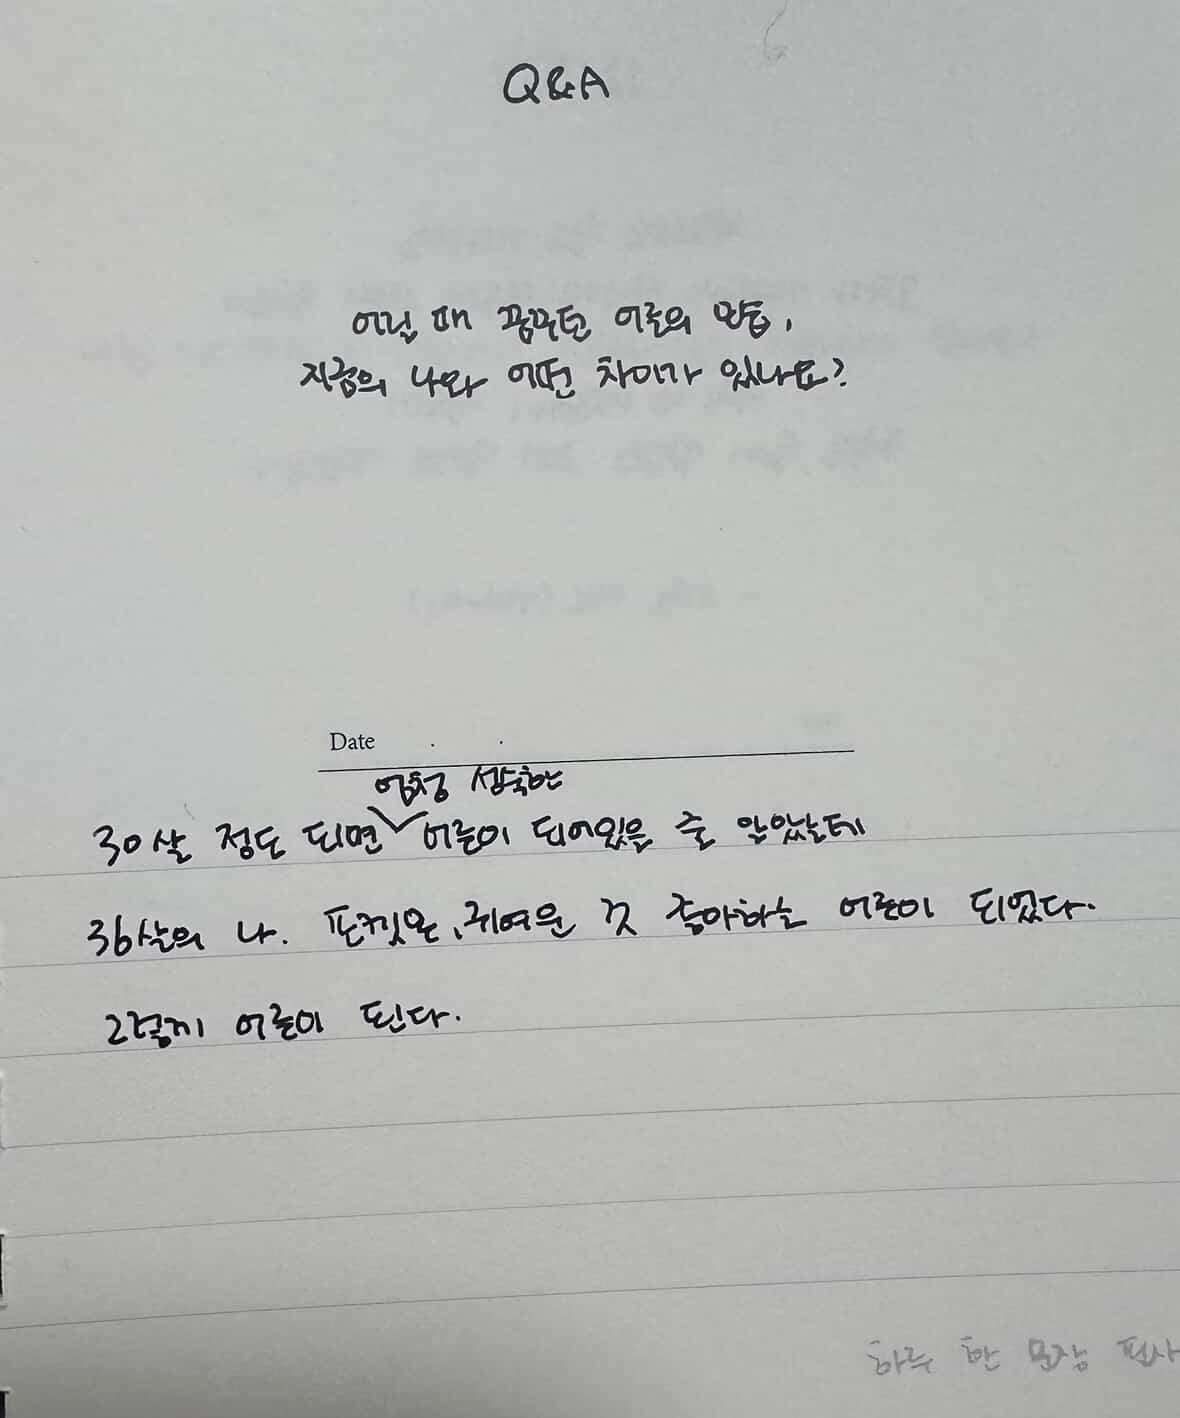 Q&A
어릴 때 꿈꾸던 어른의 모습,
지금의 나와 어떤 차이가 있나요?
Date . .
엄청 성숙한
30살 정도 되면 어른이 되어있을 줄 알았는데
36살의 나. 포켓몬, 귀여운 것 좋아하는 어른이 되었다.
그렇게 어른이 된다.
하루 한 문장 필사